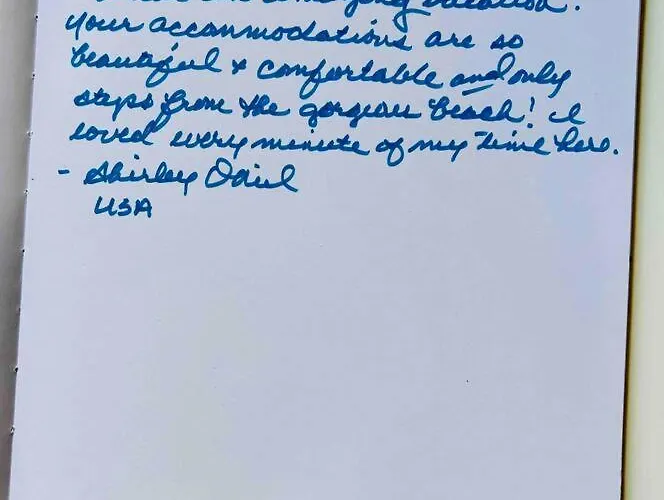 vacation.
Your accommodations are so
beautiful & comfortable and only
steps from the gorgeous beach! I
loved every minute of my time here.
- Shirley
USA